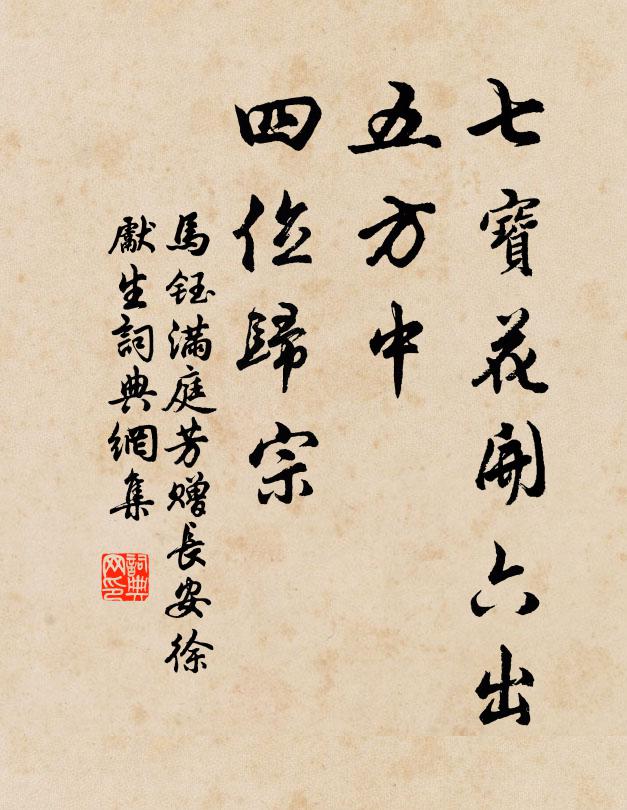 七寶花開六出
五方中
四位歸宗
馬鈺滿庭芳贈長安徐
獻生詞典網集
詞典网印